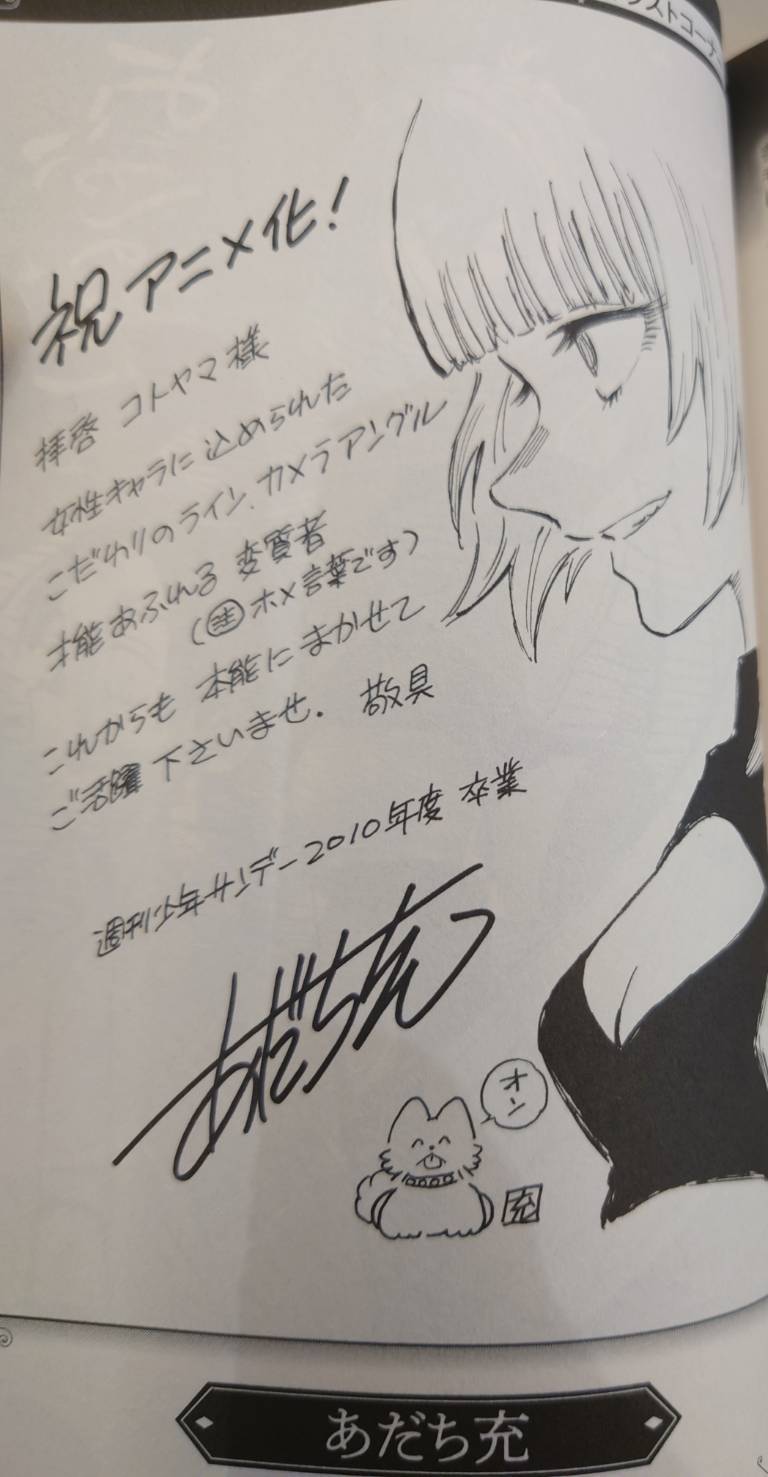 ストコーナー
祝アニメ化!
拝啓 コトヤマ様
女性キャラに込められた
こだわりのライン、カメラアングル
才能あふれる 変質者
(㊟ホメ言葉です)
これからも 本能にまかせて
ご活躍 下さいませ. 敬具
週刊少年サンデー2010年度 卒業
あだち充
オン
充
あだち充